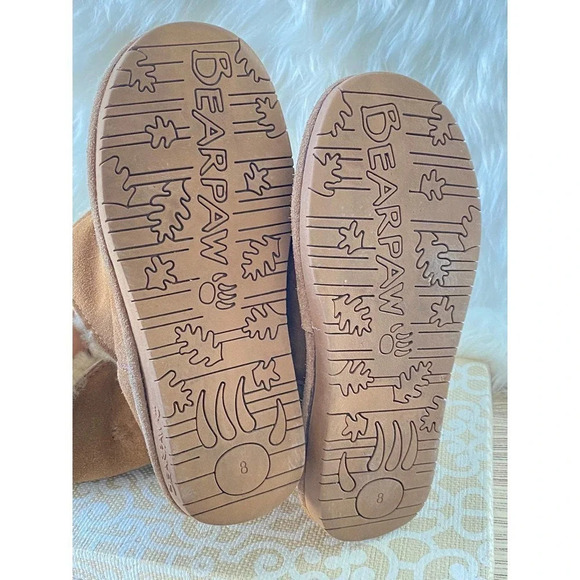 BEARPAW
BEARPAW
8
8